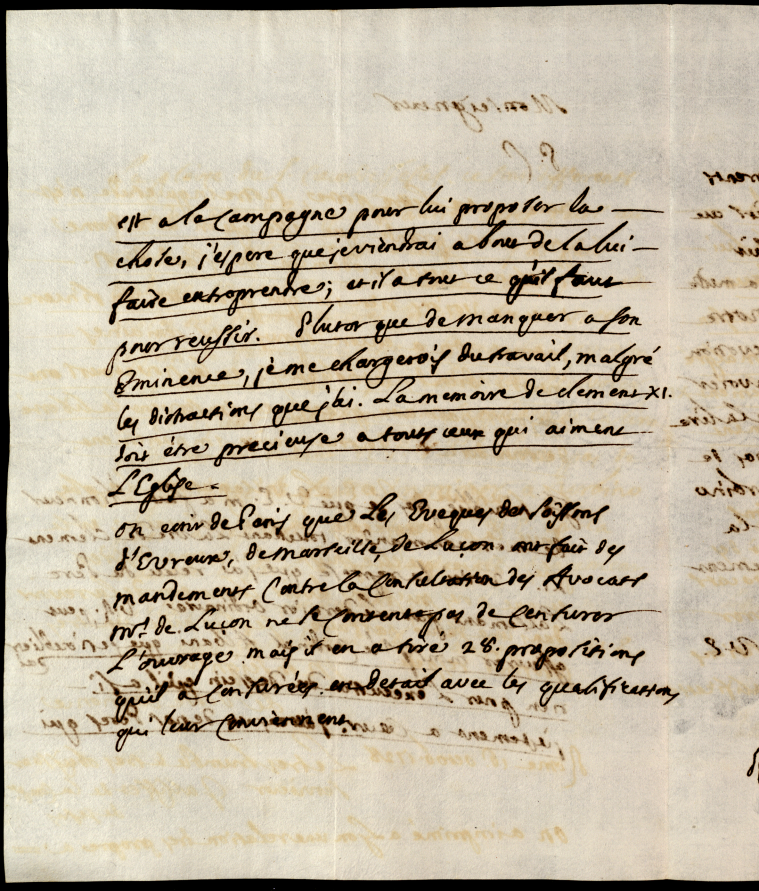 est a la Campagne pour lui proposer la
chose, j'espere que je viendrai a bout de la lui
faire entreprendre; et il a tout ce qu'il faut
pour reussir. Plutot que de manquer a son
Eminence, je me chargerois du travail, malgré
les distractions que j'ai. La memoire de clement XI.
doit être precieuse a touts ceux qui aiment
L'Eglise.
on ecrit de Paris que Les Eveques de Soissons
d'Evreux, de Marseille, de Luçon ont fait des
mandements Contre la Consultation des Avocats
Mr. de Luçon ne se Contente pas de Censurer
L'ouvrage mais il en a tiré 28. propositions
qu'il a Censurées en detail avec les qualifications
qui leur Conviennent